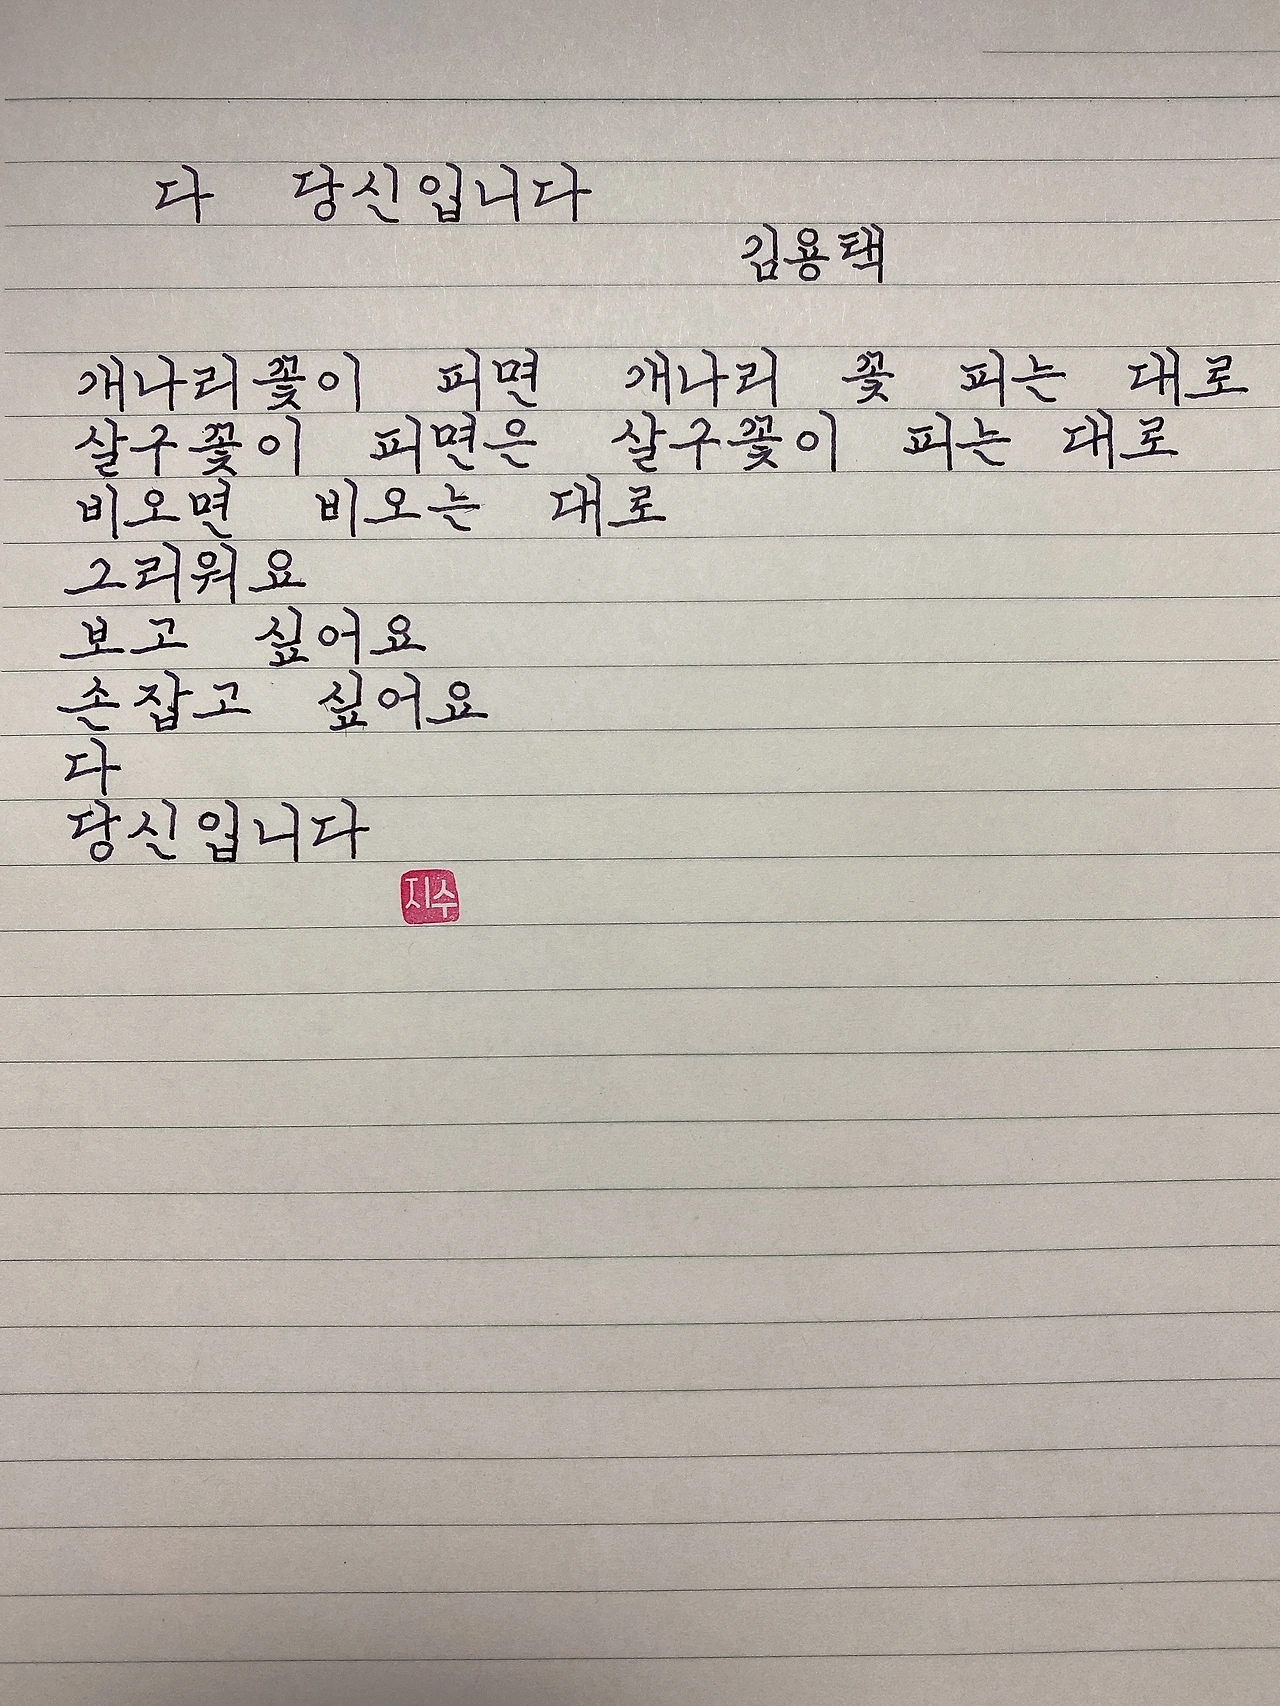 다 당신입니다
김용택
개나리꽃이 피면 개나리 꽃 피는 대로
살구꽃이 피면은 살구꽃이 피는 대로
비오면 비오는 대로
그리워요
보고 싶어요
손잡고 싶어요
다
당신입니다
지수